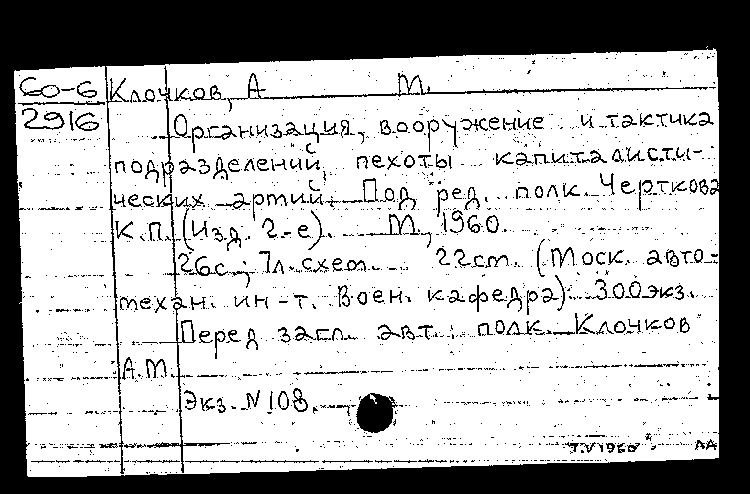 60-6
2916
Клочков, А М.
Организация, вооружение и тактика
подразделений пехоты капиталисти-
ческих артий. Под ред. полк. Черткова
К.П. (Изд. 2-е). М., 1960.
26с.; 7л.схем. 22см. (Моск. авто-
механ. ин-т. Воен. кафедра). 300экз.
Перед загл. авт.: полк. Клочков
А.М.
Экз. № 108.
АА